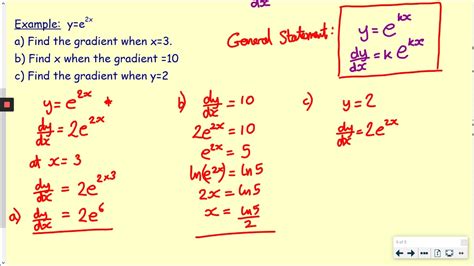 dx
Example: y=e^2x
a) Find the gradient when x=3.
b) Find x when the gradient =10
c) Find the gradient when y=2
General Statement:
y = e^kx
dy/dx = k e^kx
y = e^2x *
dy/dx = 2e^2x
at x = 3
dy/dx = 2e^2×3
a) dy/dx = 2e^6
b) dy/dx = 10
2e^2x = 10
e^2x = 5
ln(e^2x) = ln5
2x = ln5
x = ln5/2
c) y = 2
dy/dx = 2e^2x